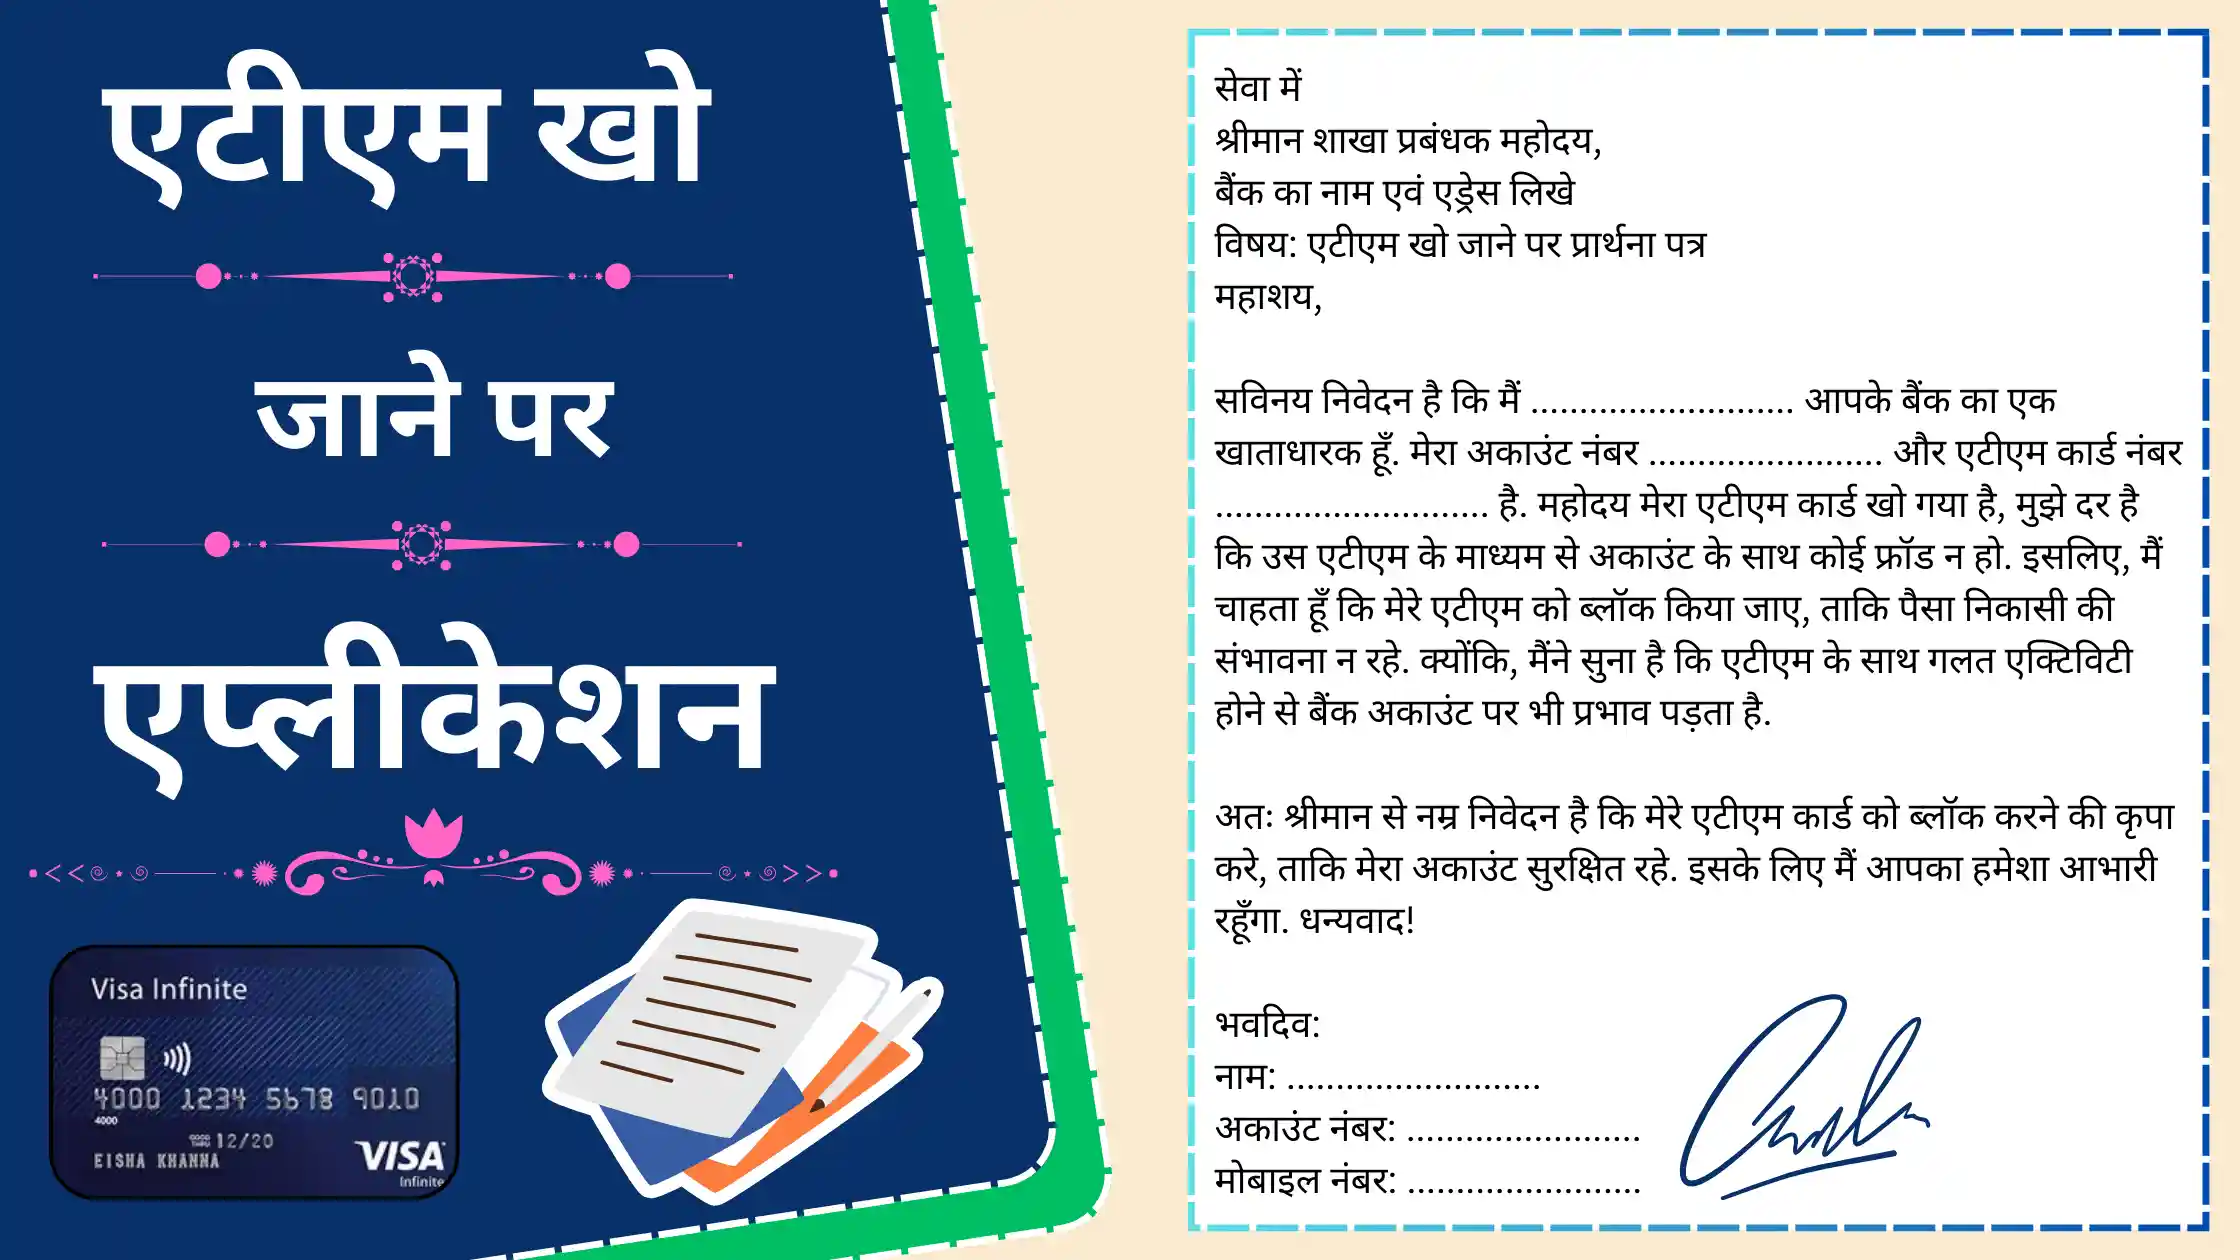 एटीएम खो
जाने पर
एप्लीकेशन
Visa Infinite
4000 1234 5678 9010
4000
12/20
EISHA KHANNA
VISA
Infinite
सेवा में
श्रीमान शाखा प्रबंधक महोदय,
बैंक का नाम एवं एड्रेस लिखे
विषय: एटीएम खो जाने पर प्रार्थना पत्र
महाशय,
सविनय निवेदन है कि मैं ........................... आपके बैंक का एक
खाताधारक हूँ. मेरा अकाउंट नंबर ........................ और एटीएम कार्ड नंबर
............................ है. महोदय मेरा एटीएम कार्ड खो गया है, मुझे दर है
कि उस एटीएम के माध्यम से अकाउंट के साथ कोई फ्रॉड न हो. इसलिए, मैं
चाहता हूँ कि मेरे एटीएम को ब्लॉक किया जाए, ताकि पैसा निकासी की
संभावना न रहे. क्योंकि, मैंने सुना है कि एटीएम के साथ गलत एक्टिविटी
होने से बैंक अकाउंट पर भी प्रभाव पड़ता है.
अतः श्रीमान से नम्र निवेदन है कि मेरे एटीएम कार्ड को ब्लॉक करने की कृपा
करे, ताकि मेरा अकाउंट सुरक्षित रहे. इसके लिए मैं आपका हमेशा आभारी
रहूँगा. धन्यवाद!
भवदिव:
नाम: ..........................
अकाउंट नंबर: ........................
मोबाइल नंबर: ........................